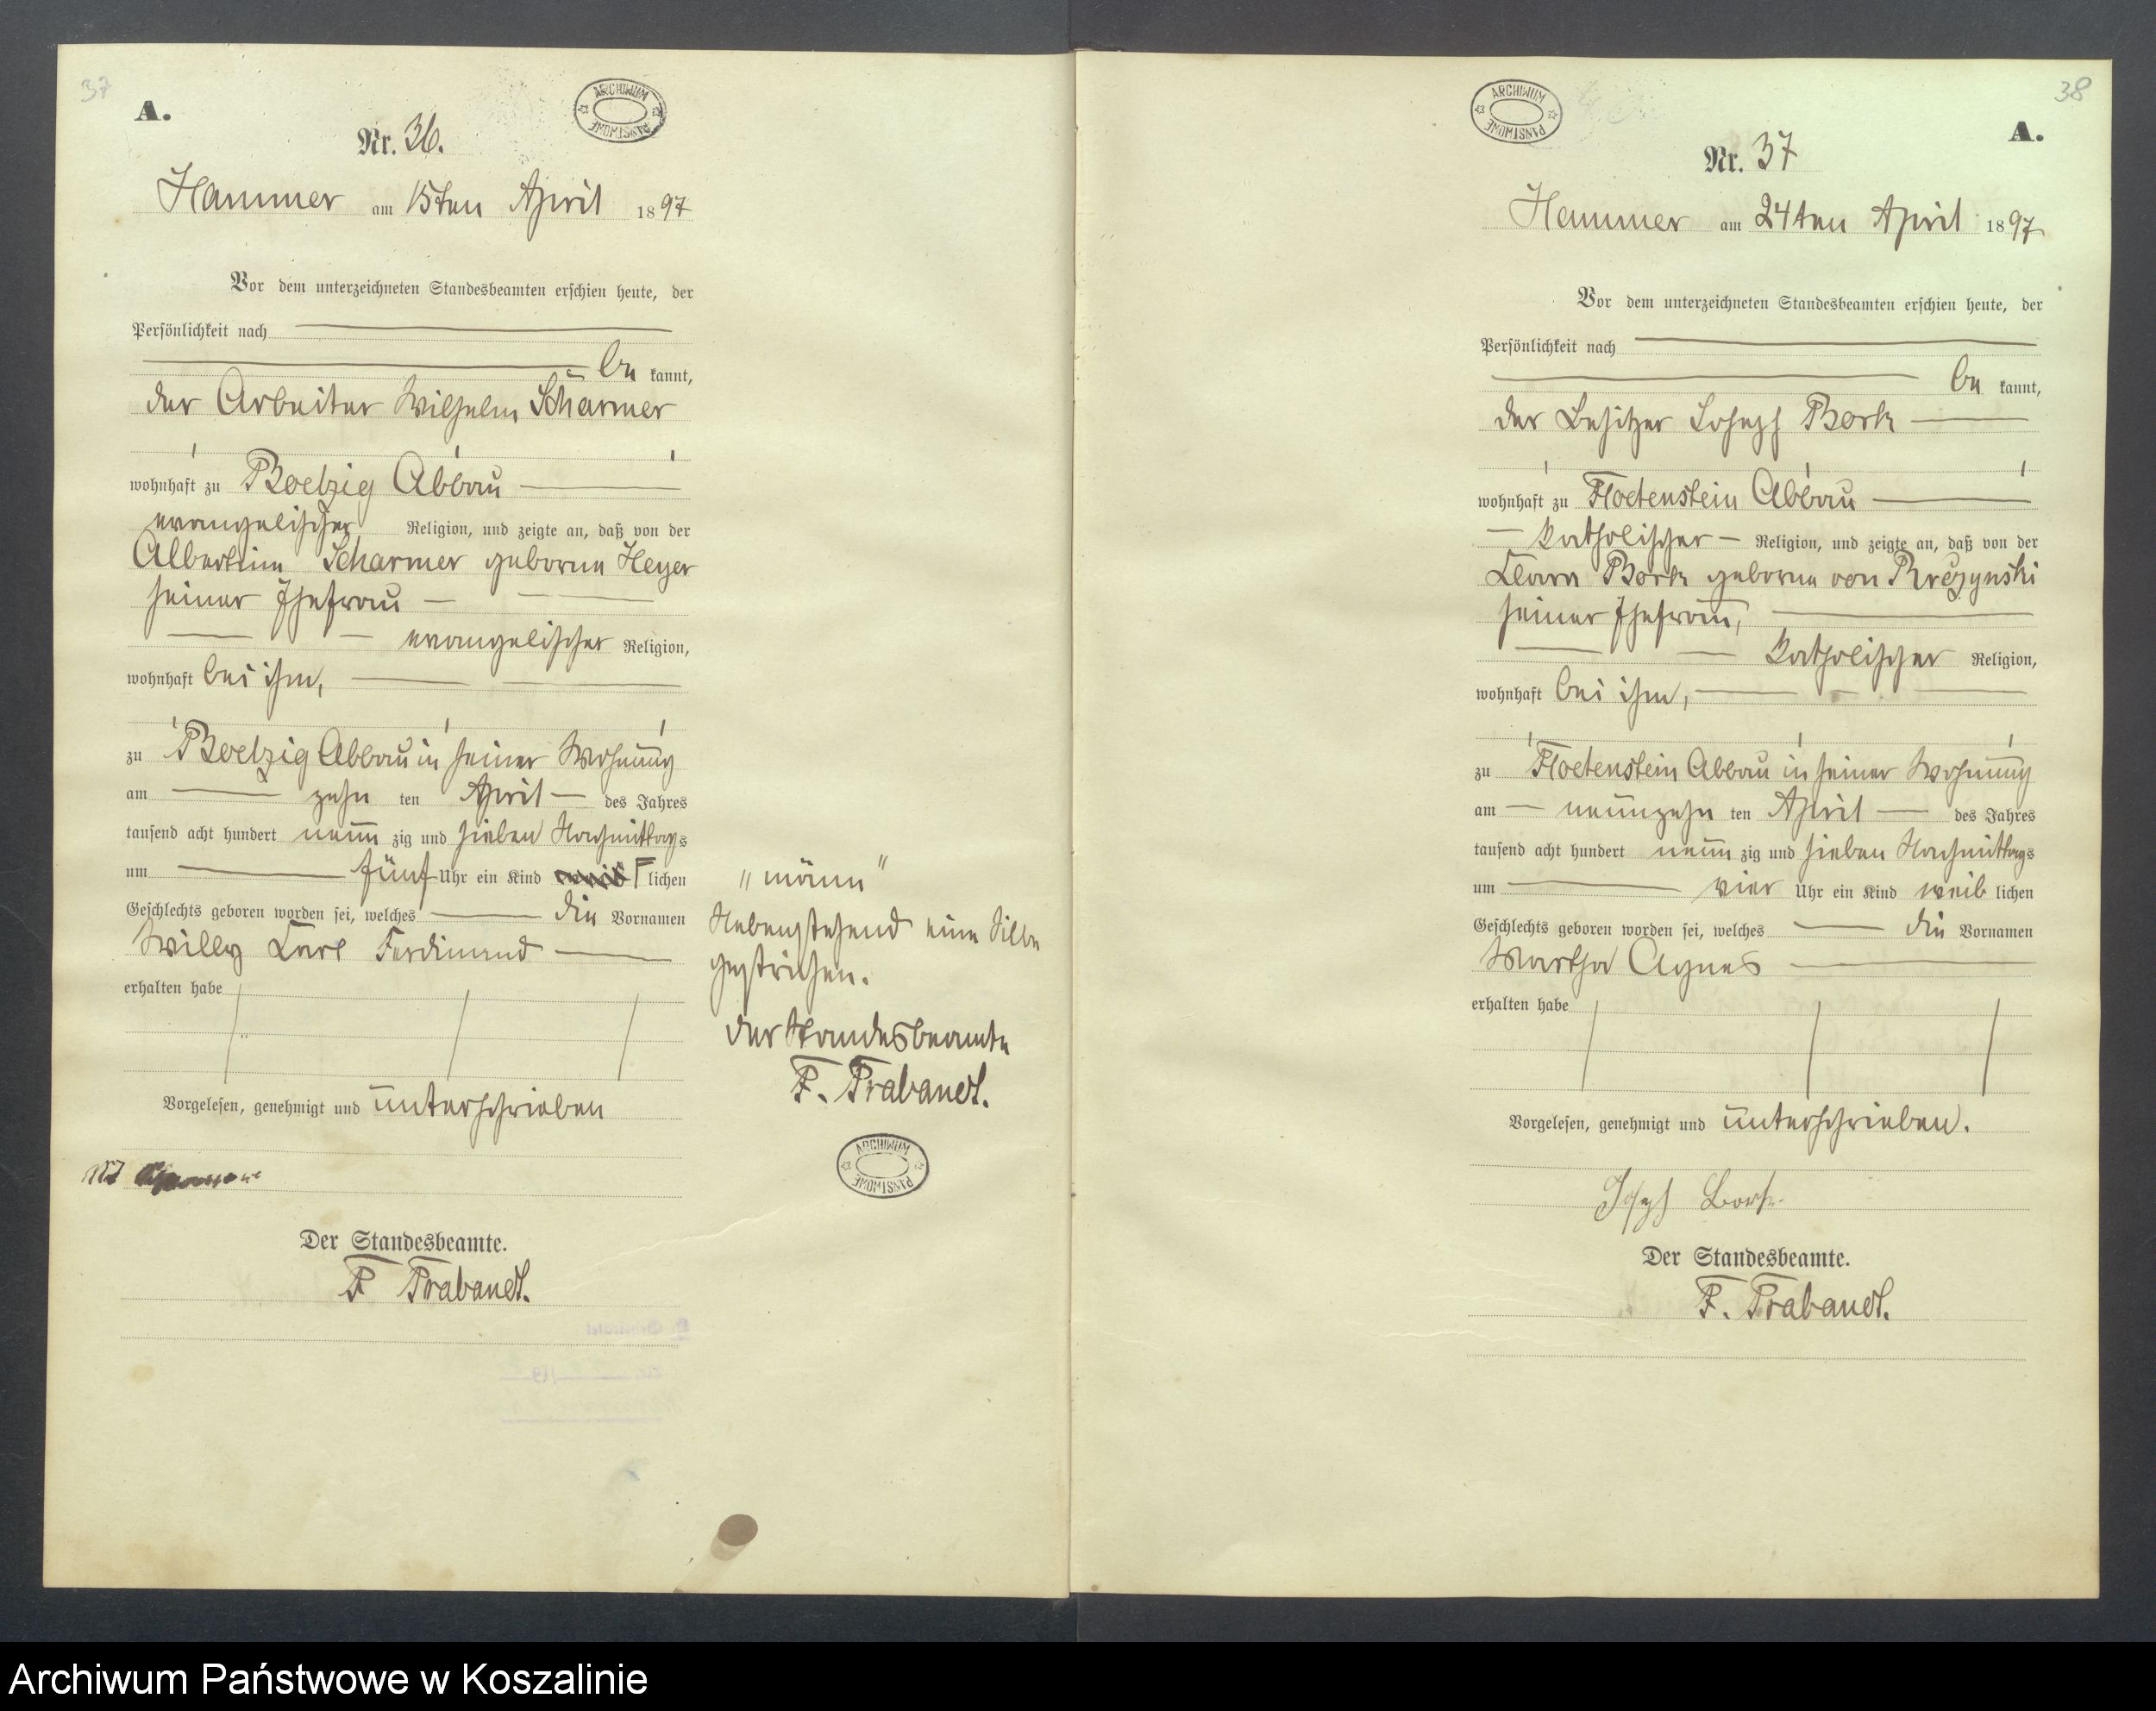 37
A.
ARCHIWUM PAŃSTWOWE
Nr. 36.
Hammer am 15ten April 1897
Vor dem unterzeichneten Standesbeamten erschien heute, der
Persönlichkeit nach
be kannt,
der Arbeiter Wilhelm Scharmer
wohnhaft zu Boelzig Abbau
evangelischer Religion, und zeigte an, daß von der
Albertine Scharmer geborne Heyer
seiner Ehefrau
evangelischer Religion,
wohnhaft bei ihm,
zu Boelzig Abbau in seiner Wohnung
am zehn ten April des Jahres
tausend acht hundert neun zig und sieben Nachmittags
um fünf Uhr ein Kind weib lichen
Geschlechts geboren worden sei, welches die Vornamen
Willy Carl Ferdinand
erhalten habe
Vorgelesen, genehmigt und unterschrieben
Der Standesbeamte.
F Trabandt.
"männ"
Nebenstehend eine Silbe
gestrichen.
Der Standesbeamte
F. Trabandt.
ARCHIWUM PAŃSTWOWE
38
A.
ARCHIWUM PAŃSTWOWE
Nr. 37
Hammer am 24ten April 1897
Vor dem unterzeichneten Standesbeamten erschien heute, der
Persönlichkeit nach
be kannt,
der Besitzer Joseph Bork
wohnhaft zu Floetenstein Abbau
katholischer Religion, und zeigte an, daß von der
Clara Bork geborne von
seiner Ehefrau,
katholischer Religion,
wohnhaft bei ihm,
zu Floetenstein Abbau in seiner Wohnung
am neunzehn ten April des Jahres
tausend acht hundert neun zig und sieben Nachmittags
um vier Uhr ein Kind weib lichen
Geschlechts geboren worden sei, welches die Vornamen
Martha Agnes
erhalten habe
Vorgelesen, genehmigt und unterschrieben.
Joseph Bork
Der Standesbeamte.
F. Trabandt.
Archiwum Państwowe w Koszalinie